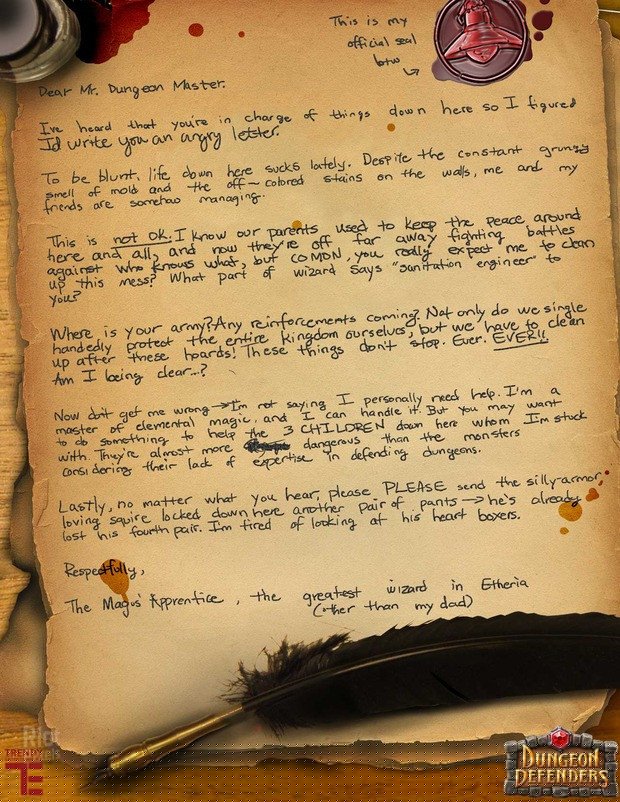 This is my
official seal
btw
Dear Mr. Dungeon Master.
I've heard that you're in charge of things down here so I figured
I'd write you an angry letter.
To be blunt, life down here sucks lately. Despite the constant grungy
smell of mold and the off-colored stains on the walls, me and my
friends are somehow managing.
This is not OK. I know our parents used to keep the peace around
here and all, and now they're off far away fighting battles
against who knows what, but COMON, you really expect me to clean
up this mess? What part of wizard says "sanitation engineer" to
you?
Where is your army? Any reinforcements coming? Not only do we single
handedly protect the entire kingdom ourselves, but we have to clean
up after these hoards! These things don't stop. Ever. EVER!!
Am I being clear...?
Now don't get me wrong → I'm not saying I personally need help. I'm a
master of elemental magic, and I can handle it. But you may want
to do something to help the 3 CHILDREN down here whom I'm stuck
with. They're almost more dangerous than the monsters
considering their lack of expertise in defending dungeons.
Lastly, no matter what you hear, please PLEASE send the silly-armor
loving squire locked down here another pair of pants → he's already
lost his fourth pair. I'm tired of looking at his heart boxers.
Respectfully,
The Magus' Apprentice, the greatest wizard in Etheria
(other than my dad)
Riot
TRENDY
TE
DUNGEON
DEFENDERS